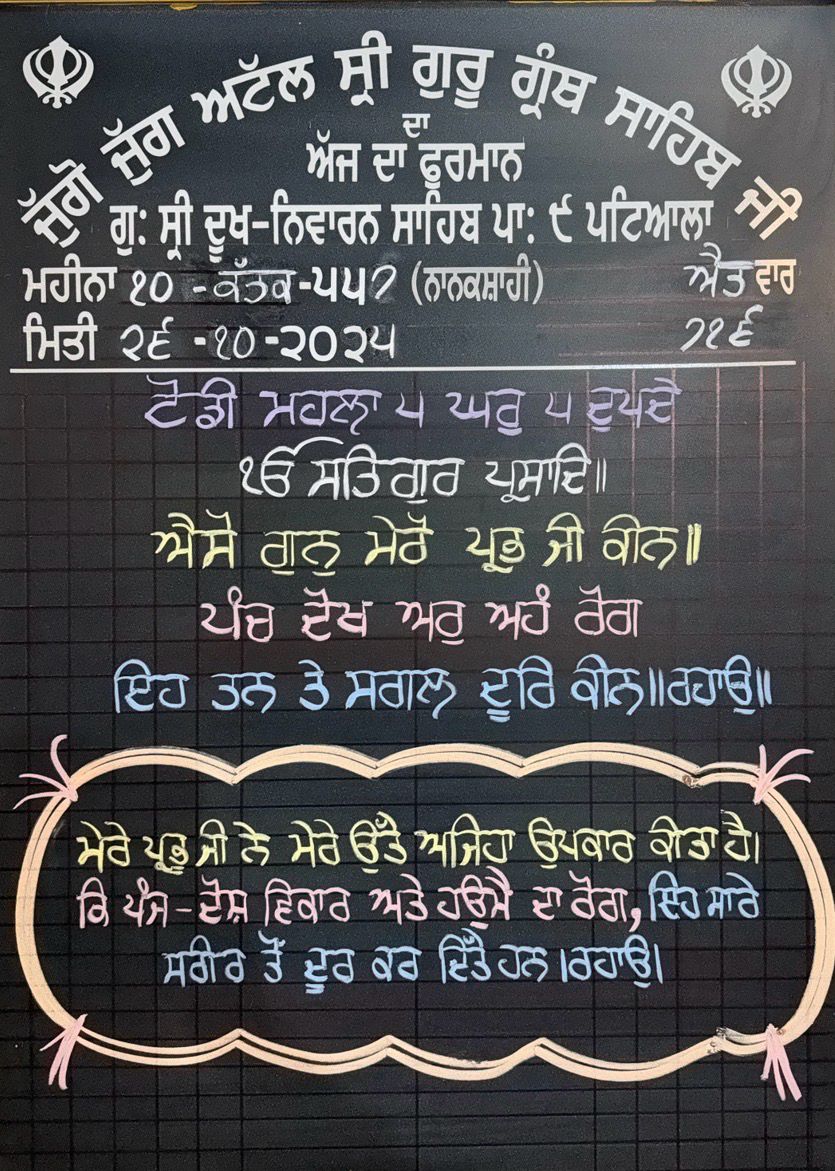 ਜੁੱਗੋ ਜੁੱਗ ਅਟੱਲ ਸ੍ਰੀ ਗੁਰੂ ਗ੍ਰੰਥ ਸਾਹਿਬ ਜੀ
ਦਾ
ਅੱਜ ਦਾ ਫੁਰਮਾਨ
ਗੁ: ਸ੍ਰੀ ਦੂਖ-ਨਿਵਾਰਨ ਸਾਹਿਬ ਪਾ: ੯ ਪਟਿਆਲਾ
ਮਹੀਨਾ ੧੦ - ਕੱਤਕ -੫੫੭ (ਨਾਨਕਸ਼ਾਹੀ) ਐਤ ਵਾਰ
ਮਿਤੀ ੨੬ -੧੦ -੨੦੨੫ ੭੧੬
ਟੋਡੀ ਮਹਲਾ ੫ ਘਰੁ ੫ ਦੁਪਦੇ
ੴ ਸਤਿਗੁਰ ਪ੍ਰਸਾਦਿ॥
ਐਸੋ ਗੁਨੁ ਮੇਰੋ ਪ੍ਰਭ ਜੀ ਕੀਨ॥
ਪੰਚ ਦੋਖ ਅਰੁ ਅਹੰ ਰੋਗ
ਇਹ ਤਨ ਤੇ ਸਗਲ ਦੂਰਿ ਕੀਨ॥ਰਹਾਉ॥
ਮੇਰੇ ਪ੍ਰਭੂ ਜੀ ਨੇ ਮੇਰੇ ਉੱਤੇ ਅਜਿਹਾ ਉਪਕਾਰ ਕੀਤਾ ਹੈ।
ਕਿ ਪੰਜ-ਦੋਸ਼ ਵਿਕਾਰ ਅਤੇ ਹਉਮੈ ਦਾ ਰੋਗ, ਇਹ ਸਾਰੇ
ਸਰੀਰ ਤੋਂ ਦੂਰ ਕਰ ਦਿੱਤੇ ਹਨ।ਰਹਾਉ।